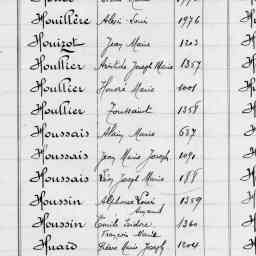 Houillère Alexis Louis 1976
Houizot Jean Marie 1203
Houllier Aristide Joseph Marie 1357
Houllier Honoré Marie 1001
Houllier Toussaint 1358
Houssais Alain Marie 687
Houssais Jean Marie Joseph 1090
Houssais Joseph Marie 188
Houssin Alphonse Louis 1359
Houssin Emile Isidore 1360
François Marie
Huard Pierre Marie Joseph 1204